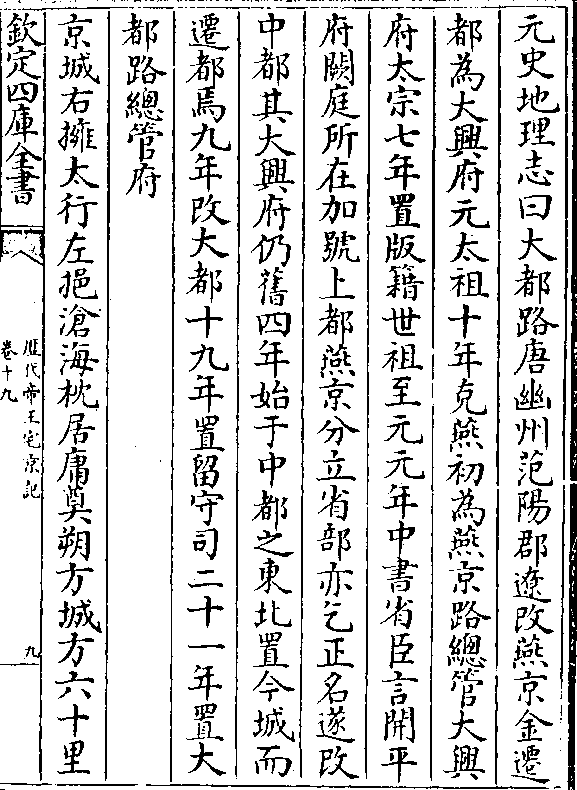 元史地理志曰大都路唐幽州范陽郡遼改燕京金遷
都為大興府元太祖十年克燕初為燕京路總管大興
府太宗七年置版籍世祖至元元年中書省臣言開平
府闕庭所在加號上都燕京分立省部亦乞正名遂改
中都其大興府仍舊四年始于中都之東北置今城而
遷都焉九年改大都十九年置留守司二十一年置大
都路總管府
京城右擁太行左挹滄海枕居庸奠朔方城方六十里
欽定四庫全書
歷代帝王宅京記
卷十九
九